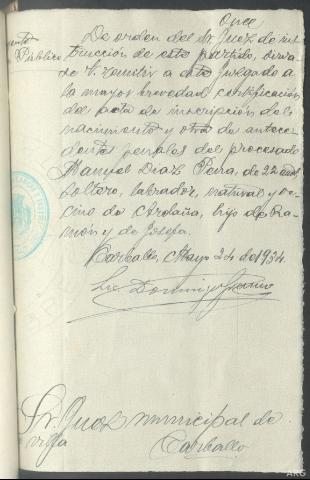 Once
De orden del Sr Juez de ins
trucción de este partido, sirva-
se V. remitir a este Juzgado a
la mayor brevedad, certificación
del acta de inscripción del
nacimiento y otra de antece
dentes penales del procesado
Manuel Diaz Pena, de 22 años
soltero, labrador, natural y ve-
cino de Ardaña, hijo de Ra-
món y de Josefa.
Carballo, Mayo 24 de 1934.
Domingo
Sr. Juez municipal de
Carballo
Público
ARG